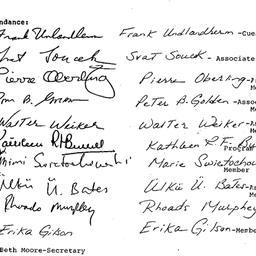 ndance:
Frank Unlandherm Frank Undlandherm-Cue
Svat Soucek Svat Soucek-Associate
Pierre Oberling Pierre Oberling-
Peter B. Golden-Asso
Walter Weiker Walter Weiker-A
Kathleen R.F. Burrill Kathleen R.F.
Program
Mimi Swietochowski Marie Swietochow
Member
Ülkü Ü. Bates Ülkü Ü. Bates-
Rhoads Murphey Rhoads Murphey
Erika Gilson Erika Gilson-Membe
Beth Moore-Secretary